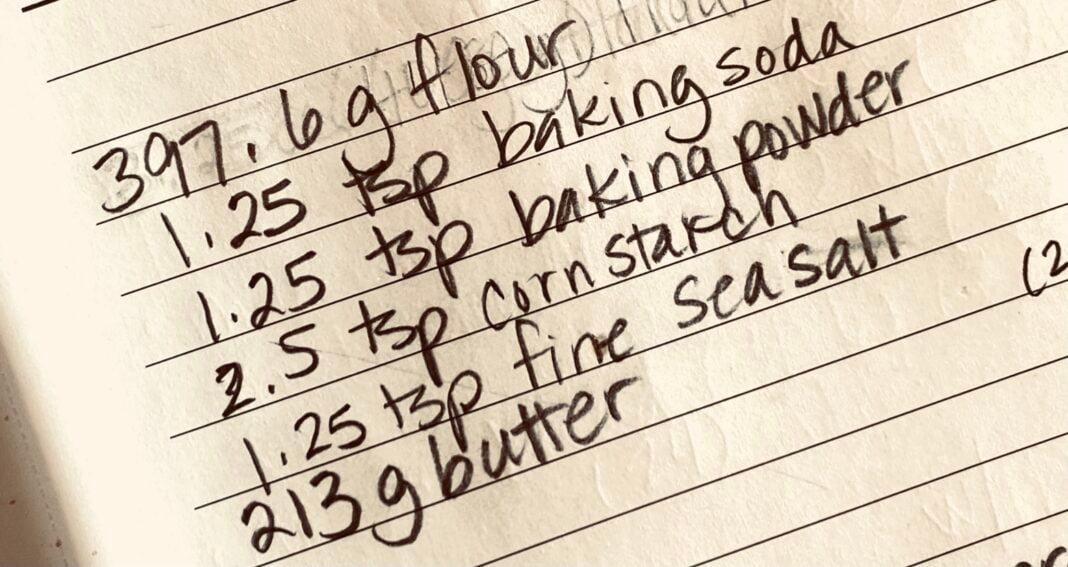 397.6 g flour
1.25 tsp baking soda
1.25 tsp baking powder
2.5 tsp corn starch
1.25 tsp fine sea salt
213 g butter
(2